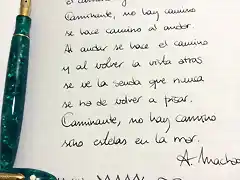 el camino y
Caminante, no hay camino
se hace camino al andar.
Al andar se hace el camino
y al volver la vista atrás
se ve la senda que nunca
se ha de volver a pisar.
Caminante, no hay camino
sino estelas en la mar.
A. Machado